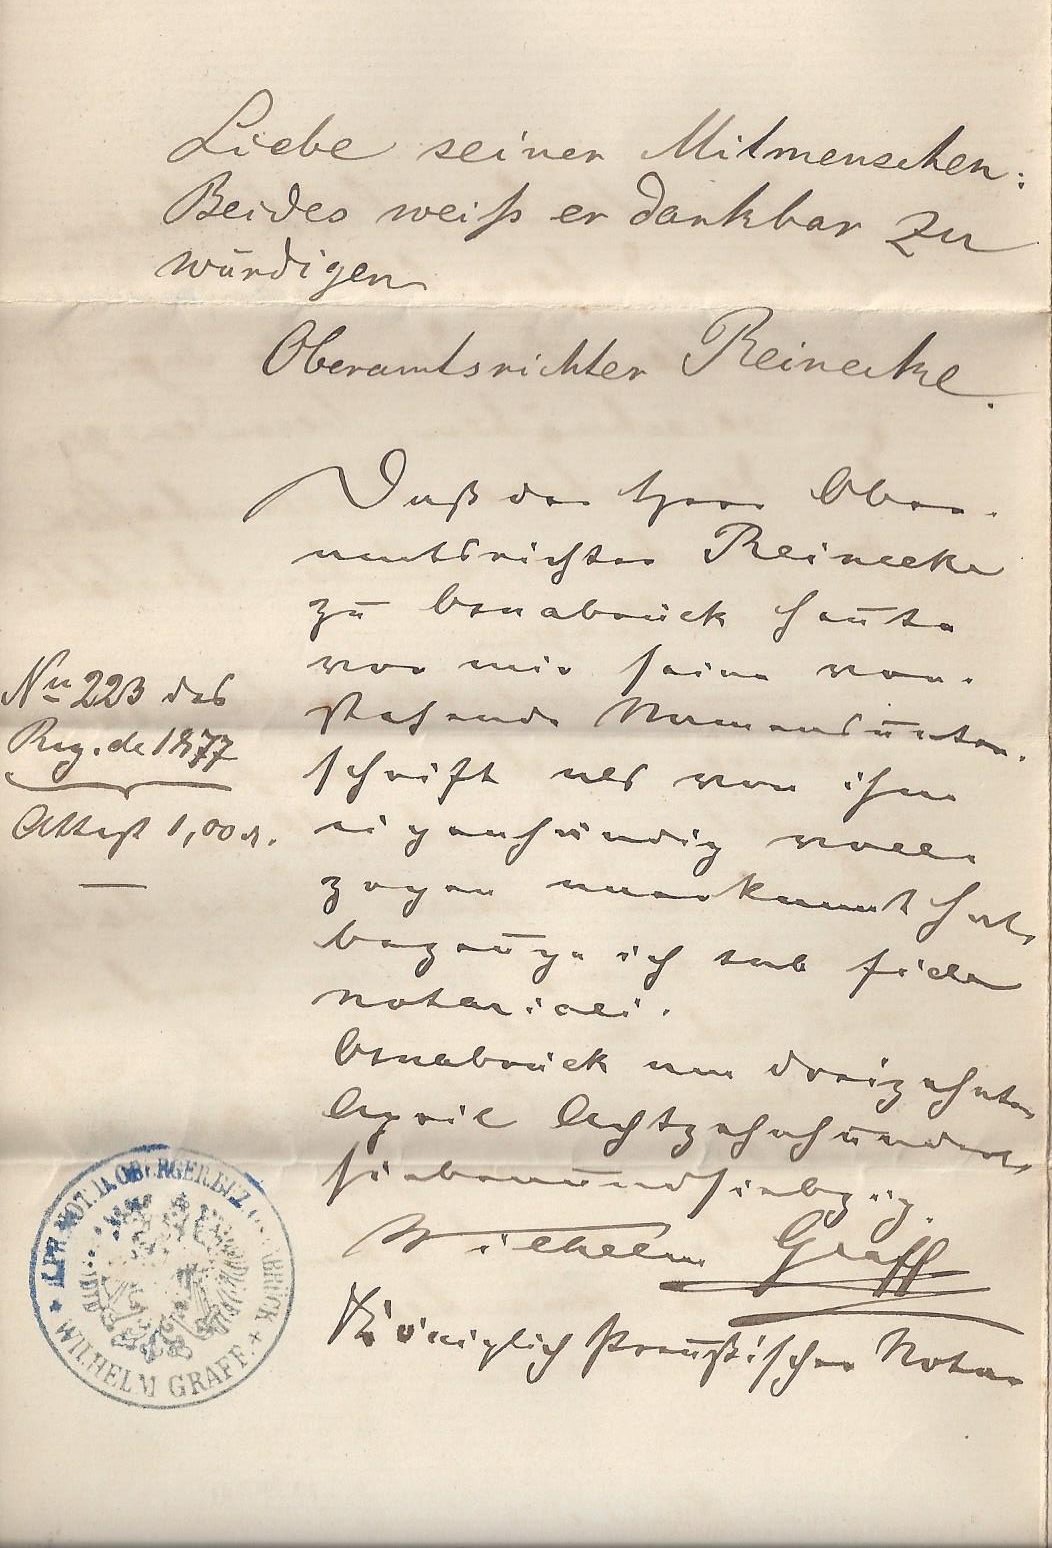 Liebe seiner Mitmenschen:
Beides weiß er dankbar zu
würdigen
Oberamtsrichter Reinecke.
Daß der Herr Ober-
amtsrichter Reinecke
zu Osnabrück heute
vor mir seine vor-
stehende Namensunter-
schrift als von ihm
eigenhändig voll-
zogen anerkannt hat,
bezeuge ich sub fide
notariali.
Osnabrück am dreizehnten
April Achtzehnhundert
siebenundsiebzig.
Wilhelm Graff
Königlich Preußischer Notar
No 223 des
Reg. de 1877
Attest 1,00 M.
K.PR.NOT.I.D.OBERGER.BEZ. OSNABRÜCK
WILHELM GRAFF